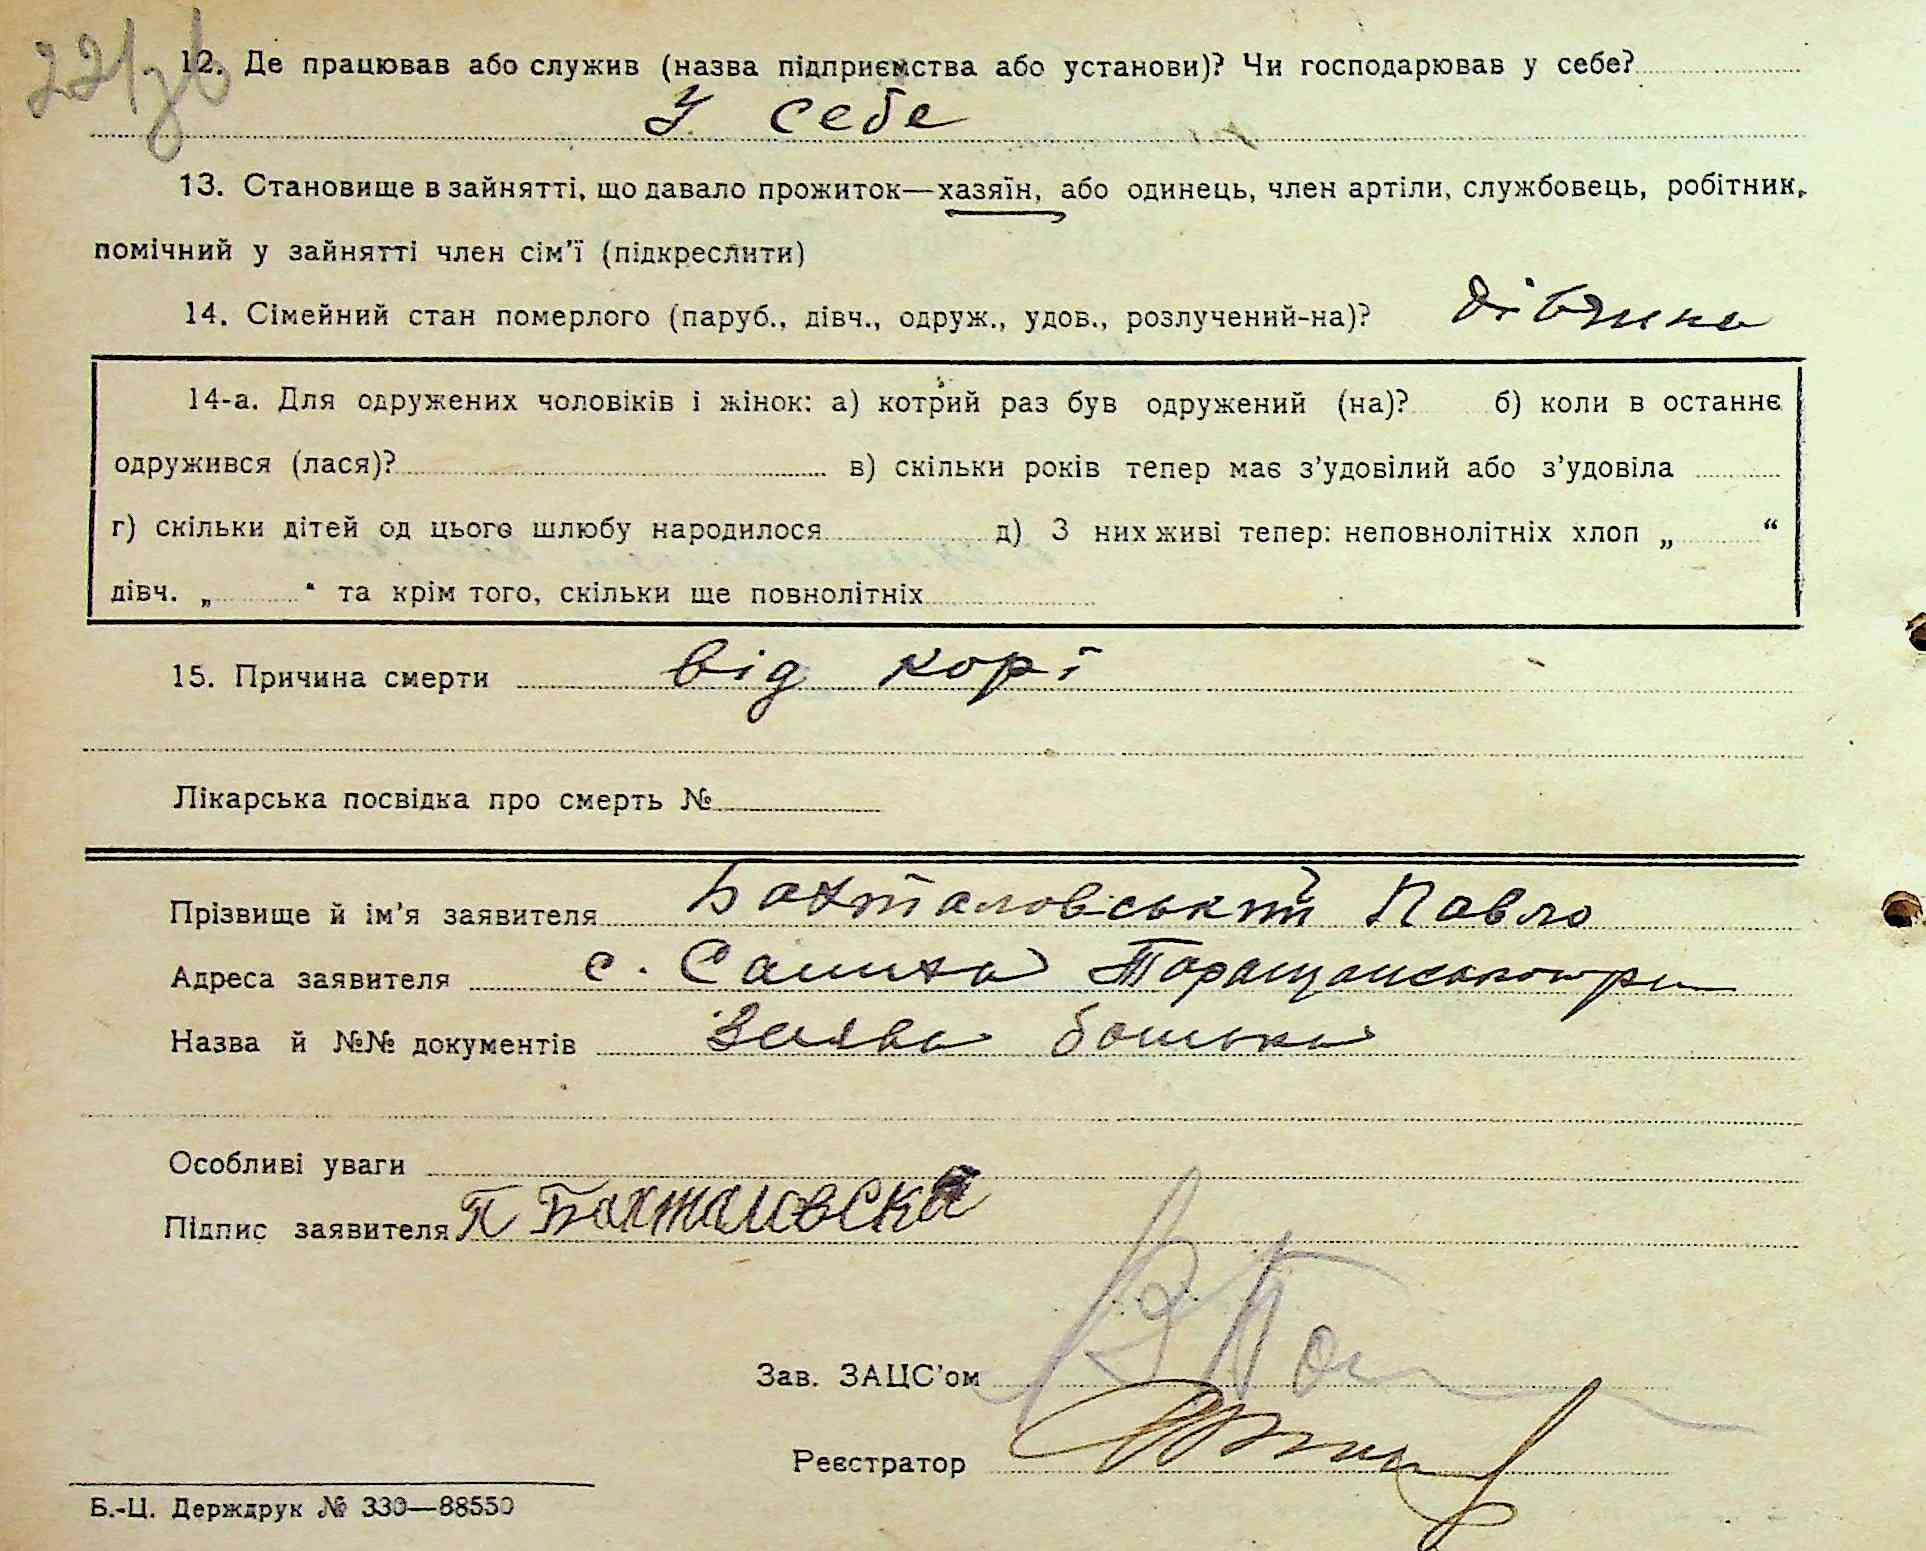 12. Де працював або служив (назва підприємства або установи)? Чи господарював у себе?
У себе
13. Становище в зайнятті, що давало прожиток—хазяїн, або одинець, член артіли, службовець, робітник,
помічний у зайнятті член сім'ї (підкреслити)
14. Сімейний стан померлого (паруб., дівч., одруж., удов., розлучений-на)? дівчина
14-а. Для одружених чоловіків і жінок: а) котрий раз був одружений (на)? б) коли в останнє
одружився (лася)? в) скільки років тепер має з'удовілий або з'удовіла
г) скільки дітей од цього шлюбу народилося д) З них живі тепер: неповнолітніх хлоп „ “
дівч. „ “ та крім того, скільки ще повнолітніх
15. Причина смерти від корі
Лікарська посвідка про смерть №
Прізвище й ім'я заявителя Бахталовський Павло
Адреса заявителя с.
Назва й №№ документів Заява батька
Особливі уваги
Підпис заявителя П Бахталовска
Зав. ЗАЦС'ом
Реєстратор
Б.-Ц. Держдрук № 330—88550